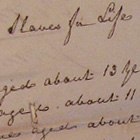 Slaves for Life
aged about 13 ye
aged about 11
aged about